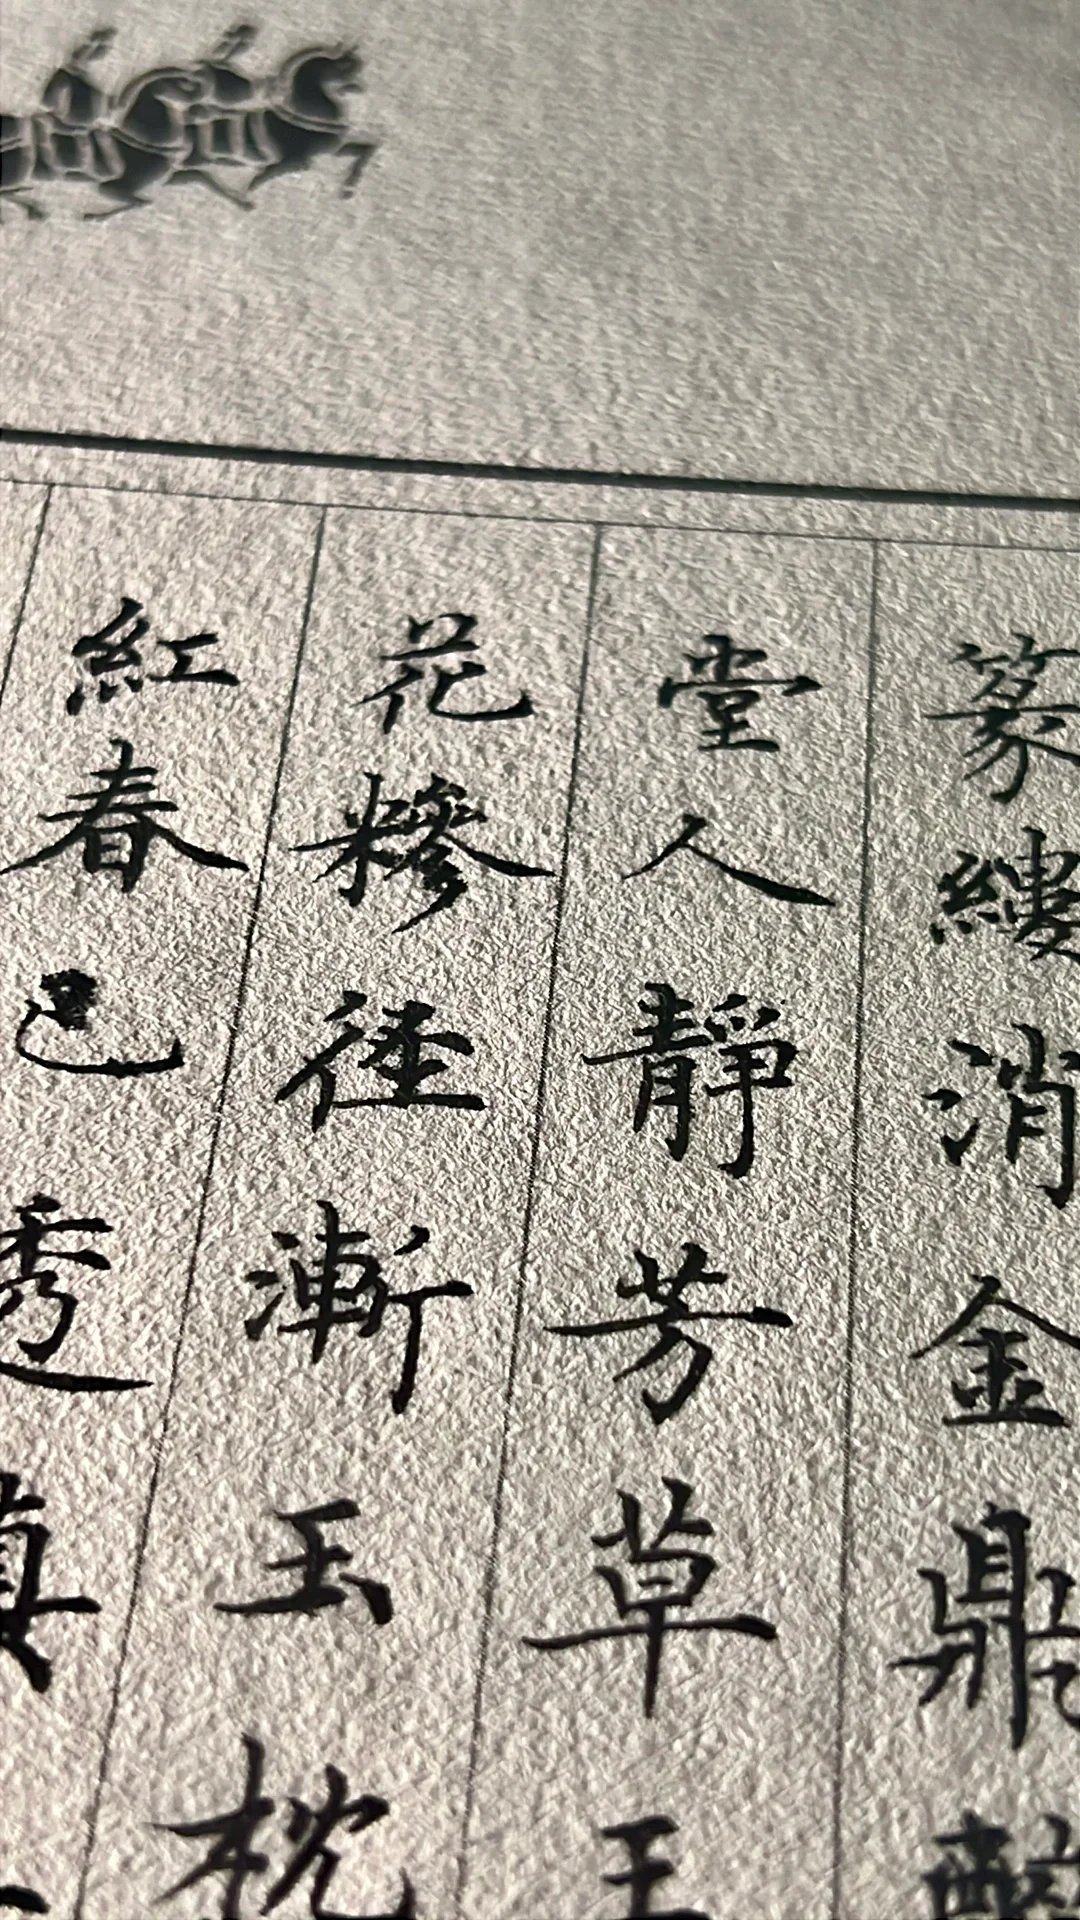 篆縷消金鼎醉
堂人靜芳草王
花糝徑漸玉枕
紅春已透鎮